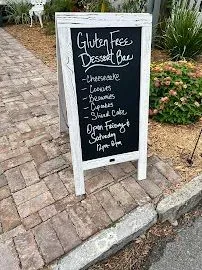 Gluten Free
Dessert Bar
- Cheesecake
- Cookies
- Brownies
- Cupcakes
- Sliced Cake
Open Friday &
Saturday
12pm - 6pm